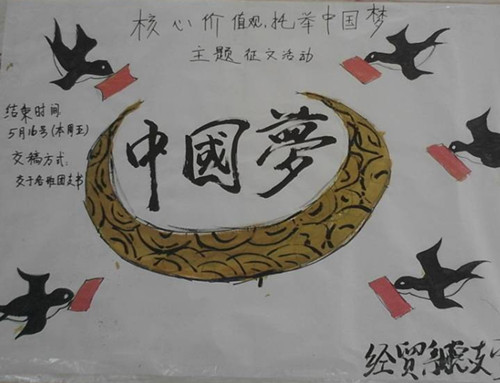 核心价值观,托举中国梦
主题征文活动
中國夢
结束时间
5月16号(本周五)
交稿方式
交于各班团支书
经贸系